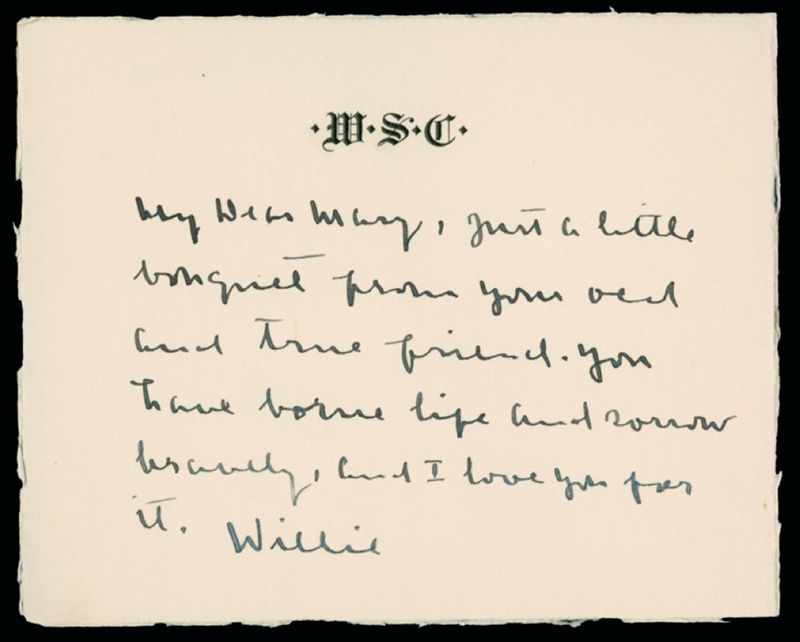 ·W·S·C·
My Dear Mary, just a little
bouquet from your old
and true friend. You
have borne life and sorrow
bravely, and I love you for
it. Willie